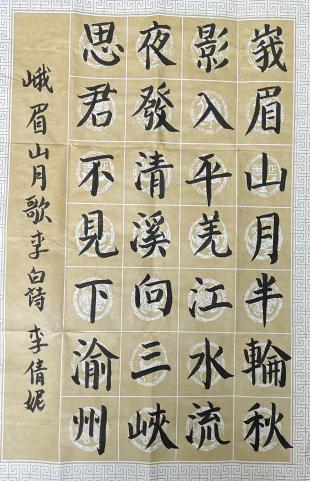 峩眉山月半輪秋
影入平羌江水流
夜發清溪向三峽
思君不見下渝州
峨眉山月歌李白诗 李倩妮